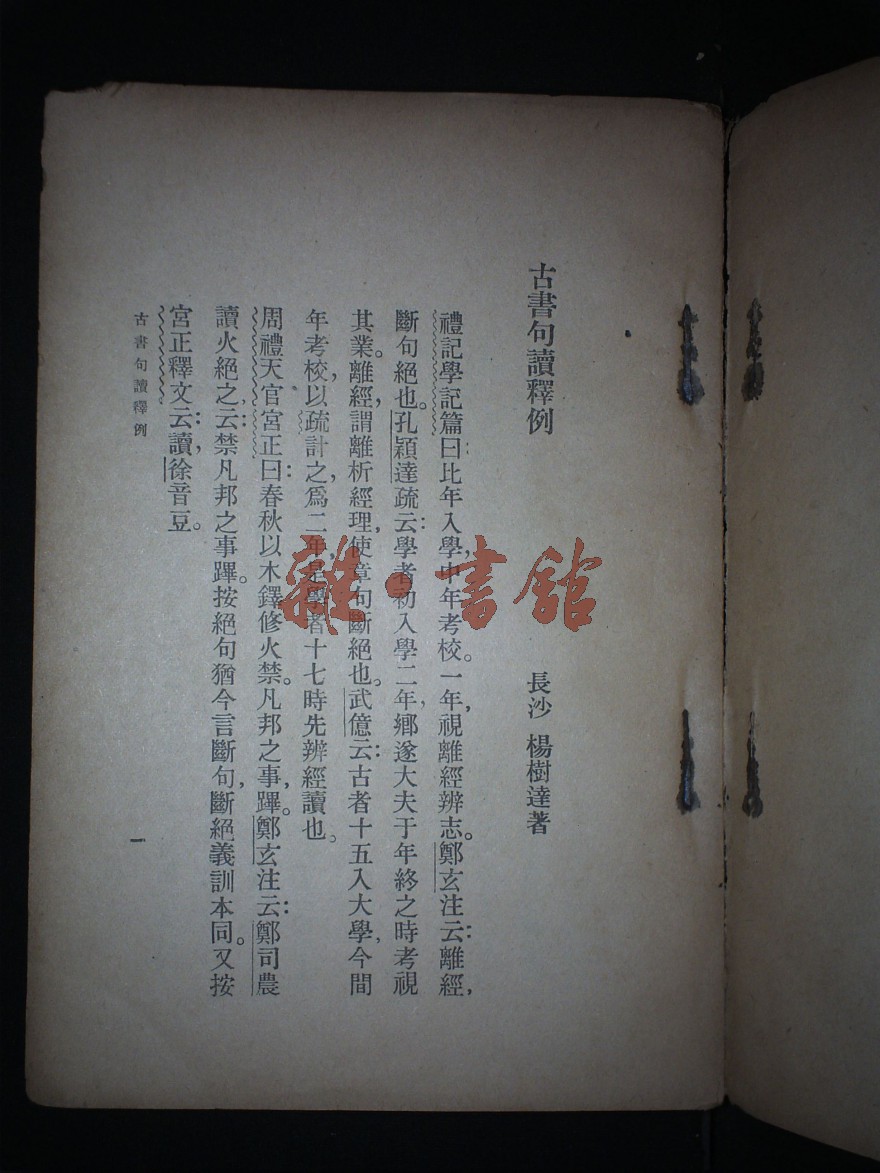 古書句讀釋例
長沙 楊樹達著
禮記學記篇曰：比年入學，中年考校。一年，視離經辨志。鄭玄注云：離經，
斷句絕也。孔穎達疏云：學者初入學二年，鄉遂大夫于年終之時考視
其業。離經，謂離析經理，使章句斷絕也。武億云：古者十五入大學，今間
年考校，以疏計之，爲二年，是學者十七時先辨經讀也。
周禮天官宮正曰：春秋以木鐸修火禁。凡邦之事，蹕。鄭玄注云：鄭司農
讀火絕之，云：禁凡邦之事蹕。按絕句猶今言斷句，斷絕義訓本同。又按
宮正釋文云：讀，徐音豆。
古書句讀釋例
一
雜·書館